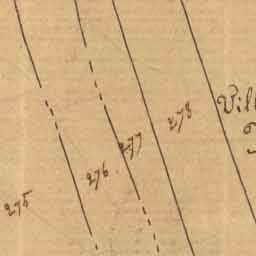 275
276
277
278
Vill